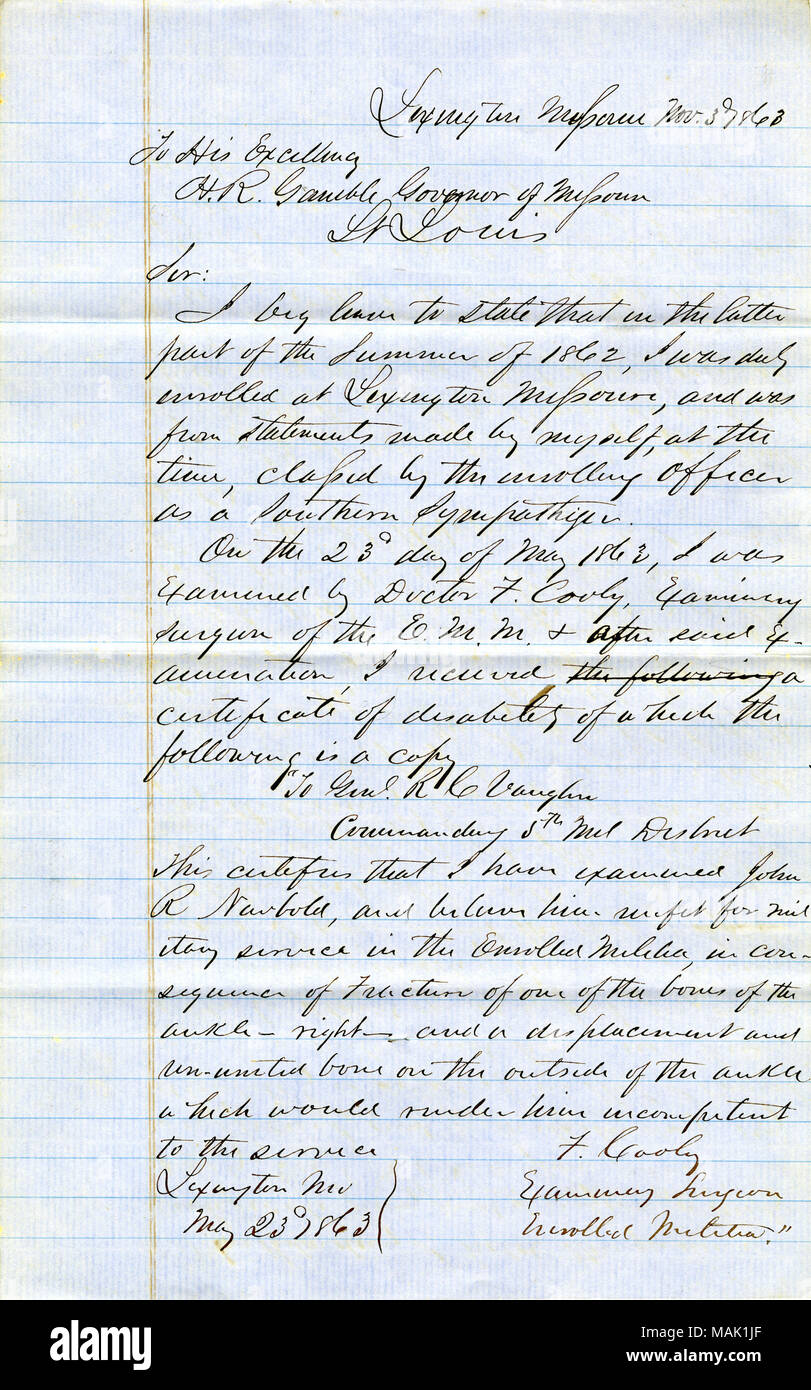 Lexington Missouri Nov. 3d 1863
To His Excellency
H. R. Gamble Governor of Missouri
St Louis
Sir:
I beg leave to state that in the latter
part of the Summer of 1862, I was duly
enrolled at Lexington Missouri, and was
from statements made by myself, at the
time, classed by the enrolling officer
as a Southern Sympathizer.
On the 23d day of May 1863, I was
Examined by Doctor F. Cooly, Examining
Surgeon of the E. M. M. & after said Ex-
amination, I received the following a
certificate of disability of which the
following is a copy
"To Genl. R C Vaughn
Commanding 5th Mil District
This certifies that I have examined John
R Newbold, and believe him unfit for mil
itary service in the Enrolled Militia, in con-
sequence of Fracture of one of the bones of the
ankle - right - and a displacement and
un-united bone on the outside of the ankle
which would render him incompetent
to the service
F. Cooly
Lexington Mo
Examining Surgeon
May 23d 1863
Enrolled Militia."
alamy
Image ID: MAK1JF
www.alamy.com